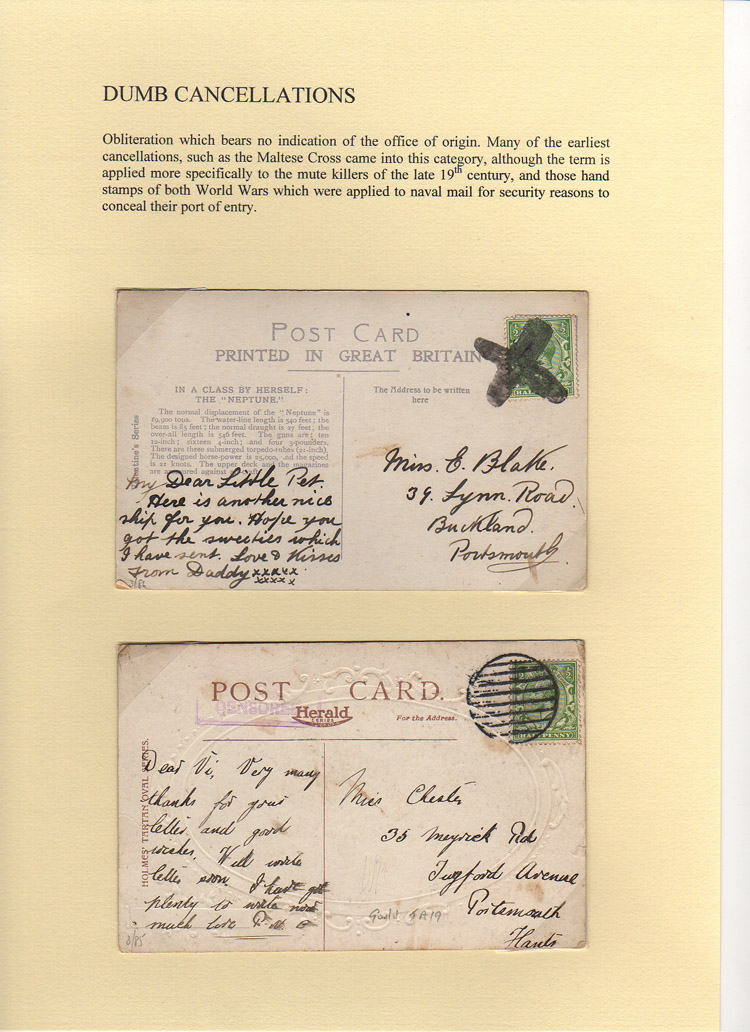 DUMB CANCELLATIONS
Obliteration which bears no indication of the office of origin. Many of the earliest
cancellations, such as the Maltese Cross came into this category, although the term is
applied more specifically to the mute killers of the late 19th century, and those hand
stamps of both World Wars which were applied to naval mail for security reasons to
conceal their port of entry.
POST CARD
PRINTED IN GREAT BRITAIN
IN A CLASS BY HERSELF:
THE "NEPTUNE."
The normal displacement of the "Neptune" is
19,900 tons. The water-line length is 540 feet; the
beam is 85 feet; the normal draught is 27 feet; the
over-all length is 546 feet. The guns are; ten
12-inch; sixteen 4-inch; and four 3-pounders.
There are three submerged torpedo-tubes (21-inch).
The designed horse-power is 25,000, and the speed
is 21 knots. The upper deck and the magazines
are armoured against
The Address to be written
here
Series
My Dear Little Pet.
Here is another nice
ship for you. Hope you
got the sweeties which
I have sent. Love & Kisses
From Daddy xxxxx
xxxxx
3/82
Miss. E. Blake.
39. Lynn. Road.
Buckland.
Portsmouth.
POST CARD.
CENSORED
Herald
SERIES
For the Address.
HALFPENNY
HOLMES' TARTAN OVAL SERIES.
Dear Vi, Very many
thanks for your
letter and good
wishes. Will write
letter soon. I have got
plenty to write now
much love
3/85
Miss Chester
35 Meyrick Rd
Twyford Avenue
Portsmouth
Hants
Gould 5A19